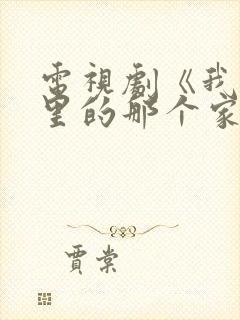 電視劇《我
里的那个家
賈棠